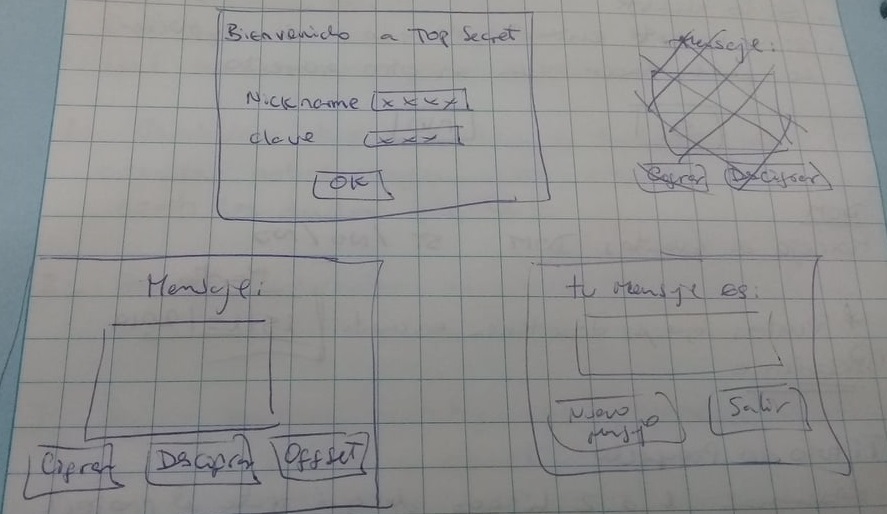 Bienvenido a Top Secret
Nickname xxxx
clave xxx
OK
Mensaje:
Cifrar Descifrar
Mensaje:
Cifrar Descifrar Offset
tu mensaje es:
Nuevo
mensaje
Salir